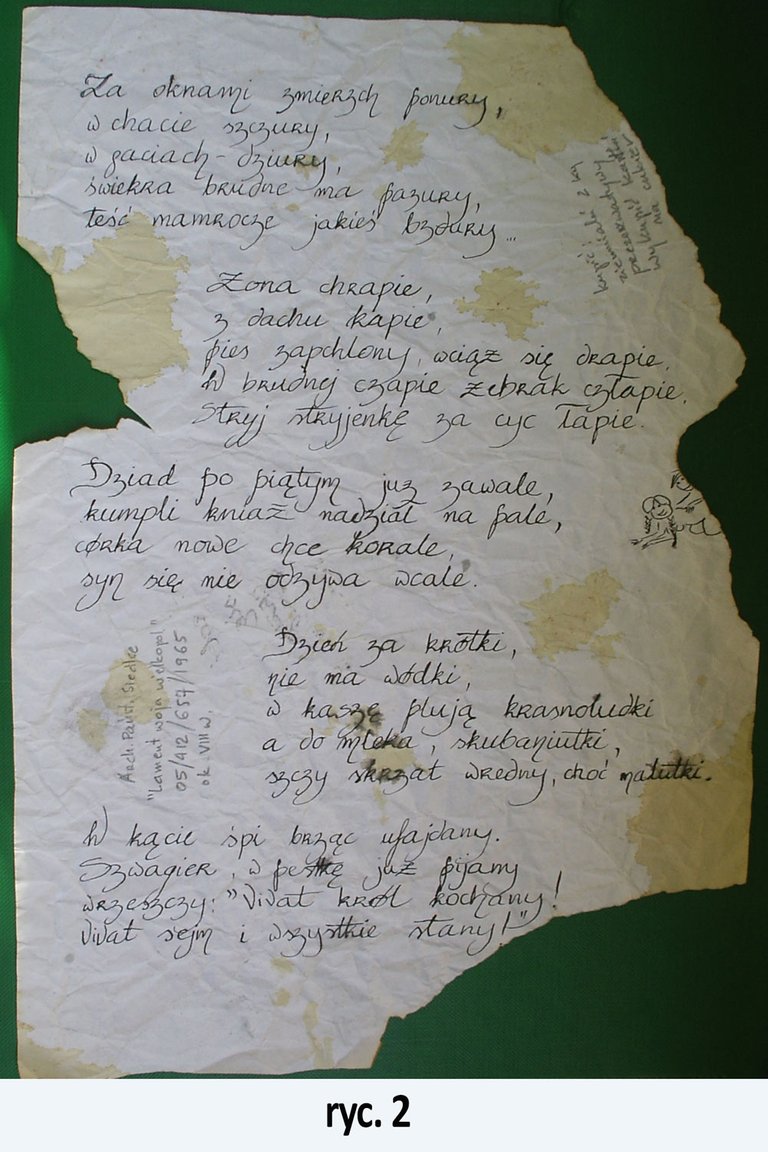 Za oknami zmierzch ponury,
w chacie szczury,
w gaciach - dziury,
świekra brudne ma pazury,
teść mamrocze jakieś bzdury...
Żona chrapie,
z dachu kapie,
pies zapchlony, wciąż się drapie.
W brudnej czapie żebrak człapie.
Stryj stryjenkę za cyc łapie.
Dziad po piątym już zawale,
kumpli kniaź nadział na pale,
córka nowe chce korale,
syn się nie odzywa wcale.
Dzień za krótki,
nie ma wódki,
w kaszę plują krasnoludki
a do mleka, skubaniutki,
szczy skrzat wredny, choć malutki.
W kącie śpi brząc ufajdany.
Szwagier, w pestkę już pijany
wrzeszczy: "Vivat król kochany!
Vivat sejm i wszystkie stany!"
kupić: 2 kg
ziemniaki
na cukier
Arch. Państ. Siedlce
"Lament woja wielkopol"
05/412/657/1965
ok. VIII w.
ryc. 2